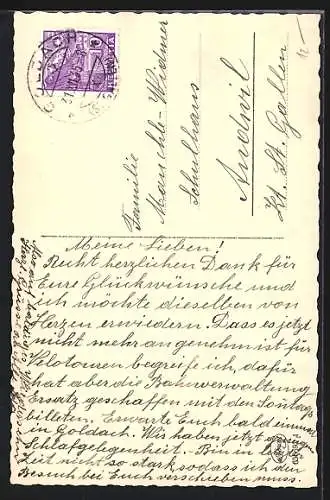 Familie
Mauchle-Widmer
Schulhaus
Andwil
Kt. St. Gallen
Meine Lieben!
Recht herzlichen Dank für
Eure Glückwünsche und
ich möchte dieselben von
Herzen erwiedern. Dass es jetzt
nicht mehr angenehm ist für
Velotouren begreife ich, dafür
hat aber die Bahnverwaltung
Ersatz geschaffen mit den Sontags
billeten. Erwarte Euch bald einmal
in Goldach. Wir haben jetzt
Schlafgelegenheit. Bin in
Zeit nicht so stark sodass ich den
Besuch bei Euch verschieben muss.